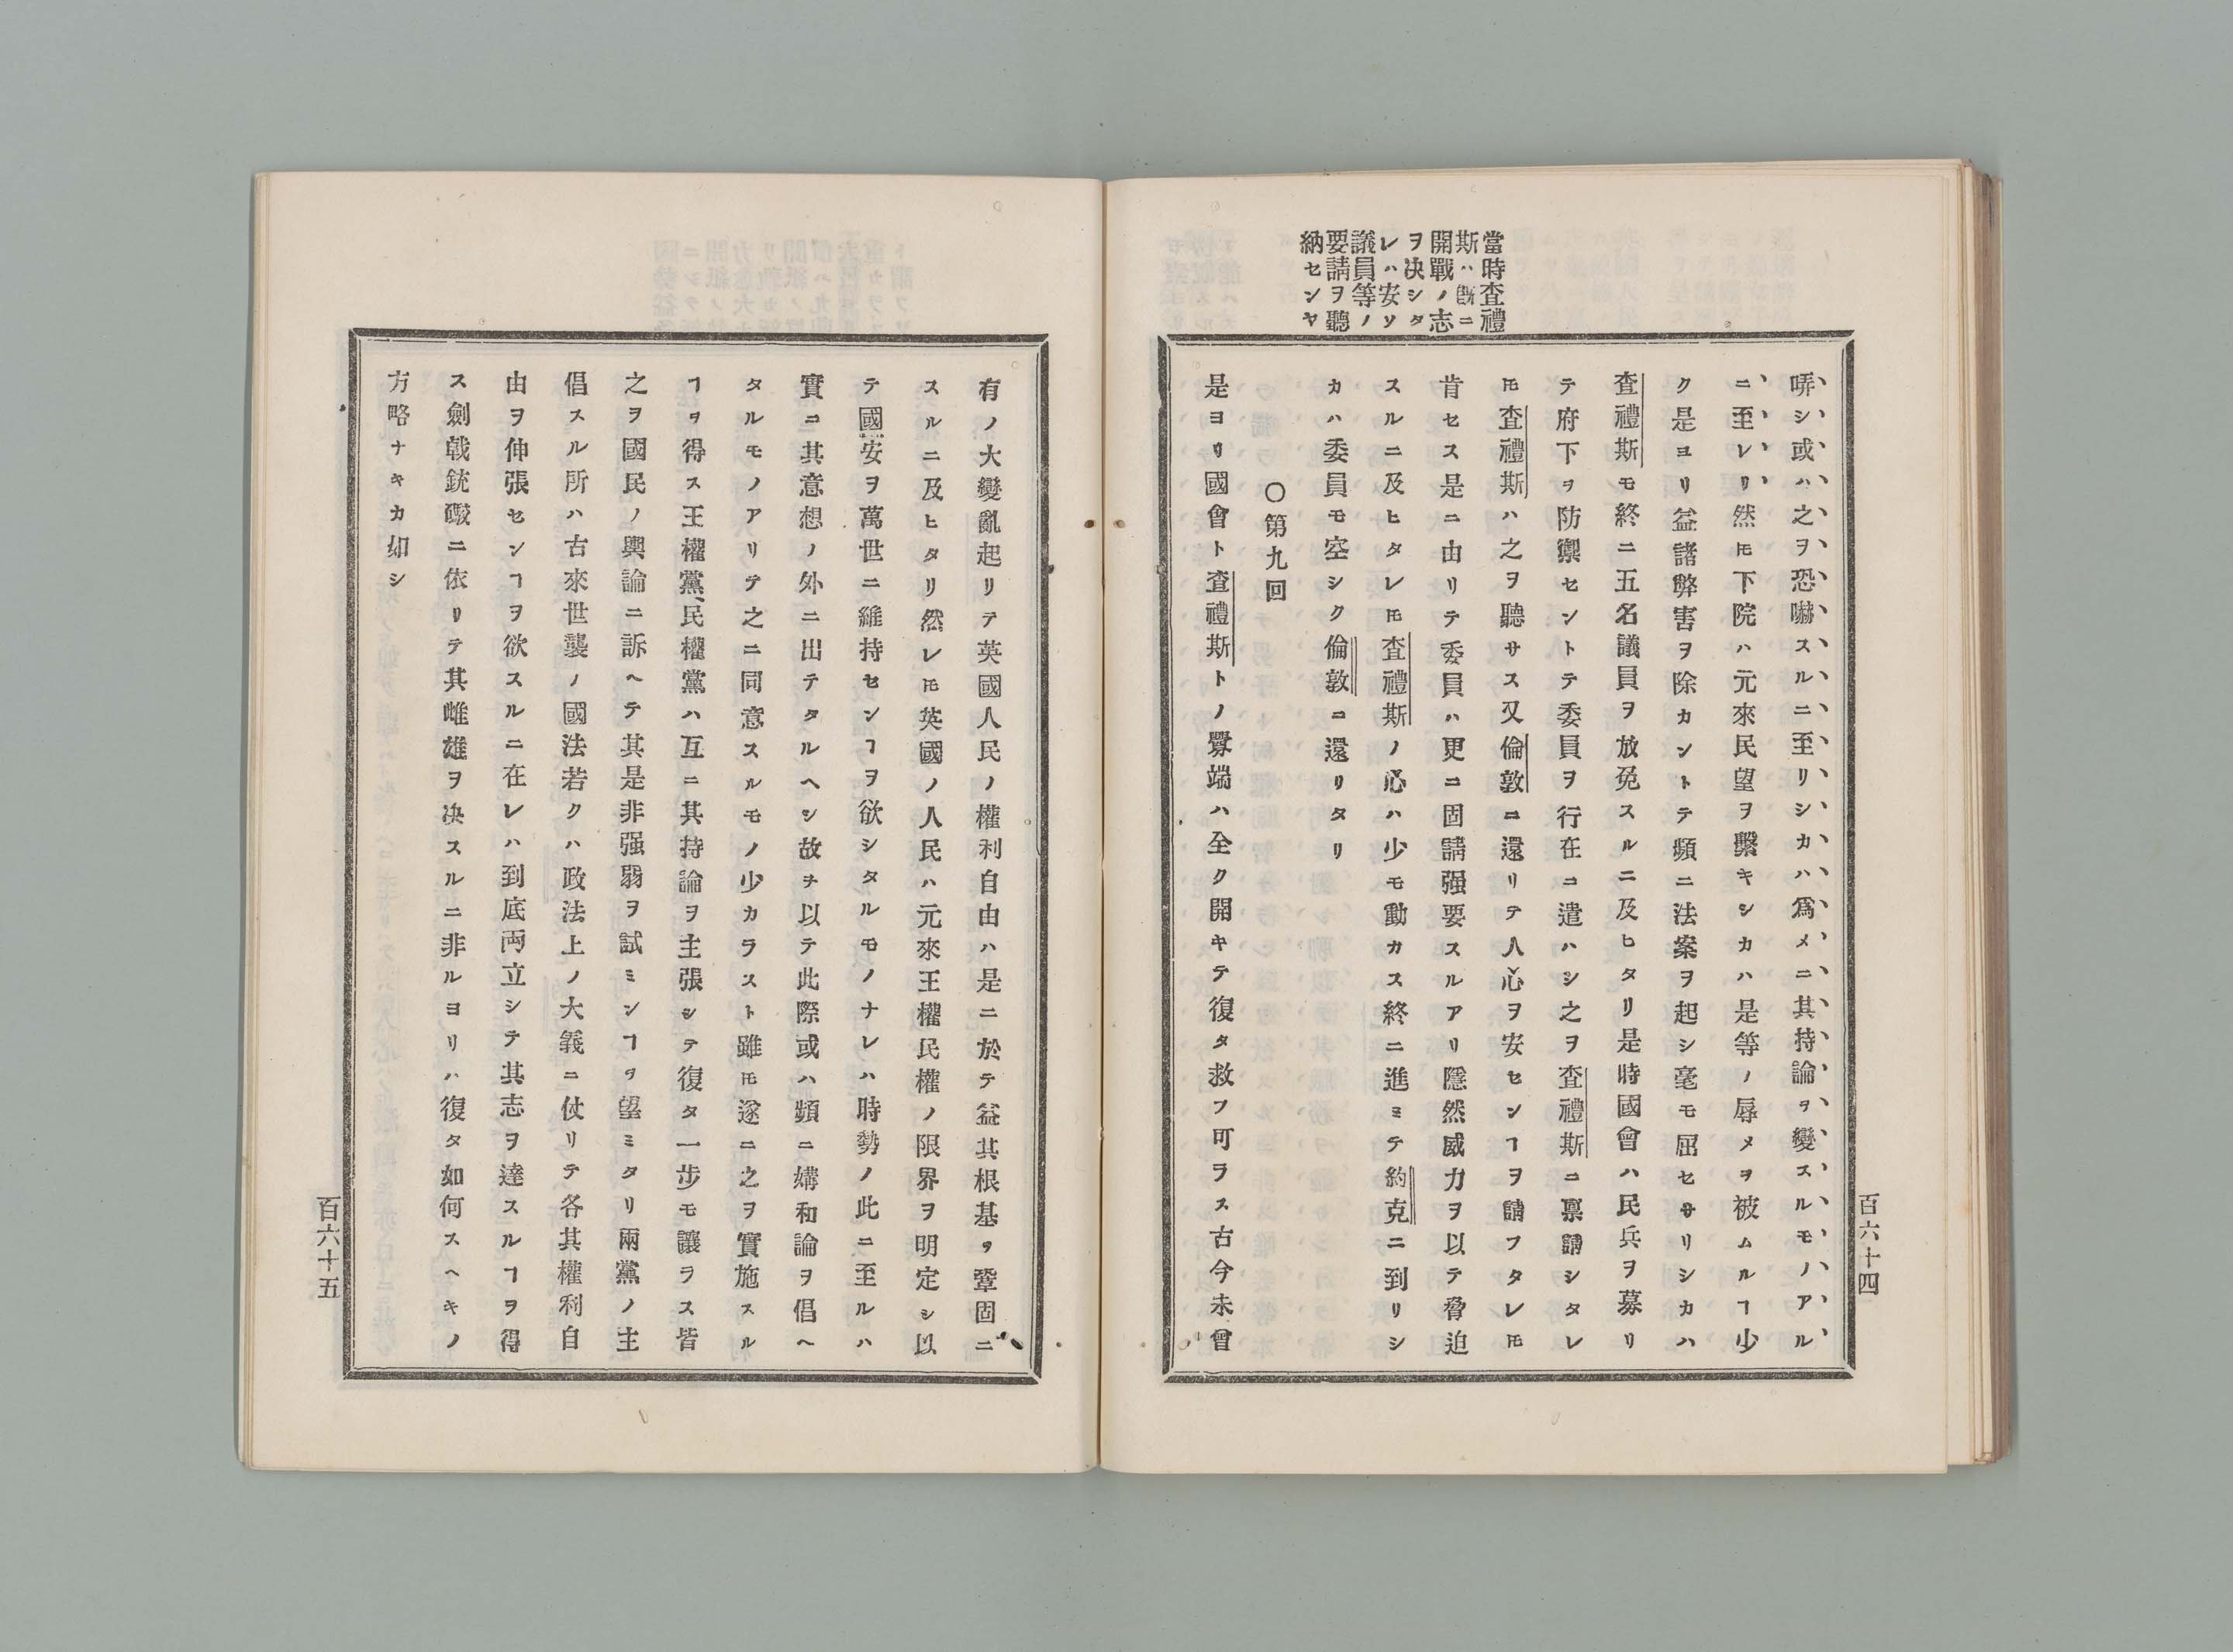 當時査禮
斯ハ既ニ
開戰ノ志
ヲ决シタ
レハ安ソ
議員等ノ
要請ヲ聽
納センヤ
哢シ或ハ之ヲ恐嚇スルニ至リシカハ爲メニ其持論ヲ變スルモノアル
ニ至レリ然𪜈下院ハ元來民望ヲ繫キシカハ是等ノ辱メヲ被ムルヿ少
ク是ヨリ益諸弊害ヲ除カントテ頻ニ法案ヲ起シ毫モ屈セサリシカハ
査禮斯モ終ニ五名議員ヲ放免スルニ及ヒタリ是時國會ハ民兵ヲ募リ
テ府下ヲ防禦セントテ委員ヲ行在ニ遣ハシ之ヲ査禮斯ニ禀請シタレ
𪜈査禮斯ハ之ヲ聽サス又倫敦ニ還リテ人心ヲ安センヿヲ請フタレ𪜈
肯セス是ニ由リテ委員ハ更ニ固請强要スルアリ隱然威力ヲ以テ脅迫
スルニ及ヒタレ𪜈査禮斯ノ心ハ少モ動カス終ニ進ミテ約克ニ到リシ
カハ委員モ空シク倫敦ニ還リタリ
〇第九回
是ヨリ國會ト査禮斯トノ釁端ハ全ク開キテ復タ救フ可ラス古今未曾
百六十四
有ノ大變亂起リテ英國人民ノ權利自由ハ是ニ於テ益其根基ヲ鞏固ニ
スルニ及ヒタリ然レ𪜈英國ノ人民ハ元來王權民權ノ限界ヲ明定シ以
テ國安ヲ萬世ニ維持センヿヲ欲シタルモノナレハ時勢ノ此ニ至ルハ
實ニ其意想ノ外ニ出テタルヘシ故ヲ以テ此際或ハ頻ニ媾和論ヲ倡ヘ
タルモノアリテ之ニ同意スルモノ少カラスト雖𪜈遂ニ之ヲ實施スル
ヿヲ得ス王權黨、民權黨ハ互ニ其持論ヲ主張シテ復タ一步モ讓ラス皆
之ヲ國民ノ輿論ニ訴ヘテ其是非强弱ヲ試ミンヿヲ望ミタリ兩黨ノ主
倡スル所ハ古來世襲ノ國法若クハ政法上ノ大義ニ仗リテ各其權利自
由ヲ伸張センヿヲ欲スルニ在レハ到底両立シテ其志ヲ達スルヿヲ得
ス劍戟銃礮ニ依リテ其雌雄ヲ决スルニ非ルヨリハ復タ如何スヘキノ
方略ナキカ如シ
百六十五